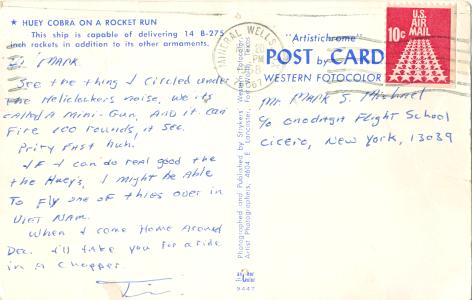 ★ HUEY COBRA ON A ROCKET RUN
This ship is capable of delivering 14 B-275
inch rockets in addition to its other armaments.
Hi MARK
See the thing I circled under
the Helicopters noise, we its
called A mini-Gun, And it can
Fire 100 rounds, A sec.
Prity Fast huh.
IF I can do real good the
the Huey's, I might be Able
To fly one of thies over in
VIET NAM.
When I come Home Around
Dec. I'll take you for a ride
in A Chopper.
Photographed and Published by Strykers' Western Fotocolor
Artist Photographers, 4604 E. Lancaster, Fort Worth, Texas
9447
MINERAL WELLS
PM
"Artistichrome"
POST by CARD
WESTERN FOTOCOLOR
U.S.
AIR
MAIL
10c
Mr MARK S. Michael
c/o Onodagit Flight School
Cicero, New York, 13039